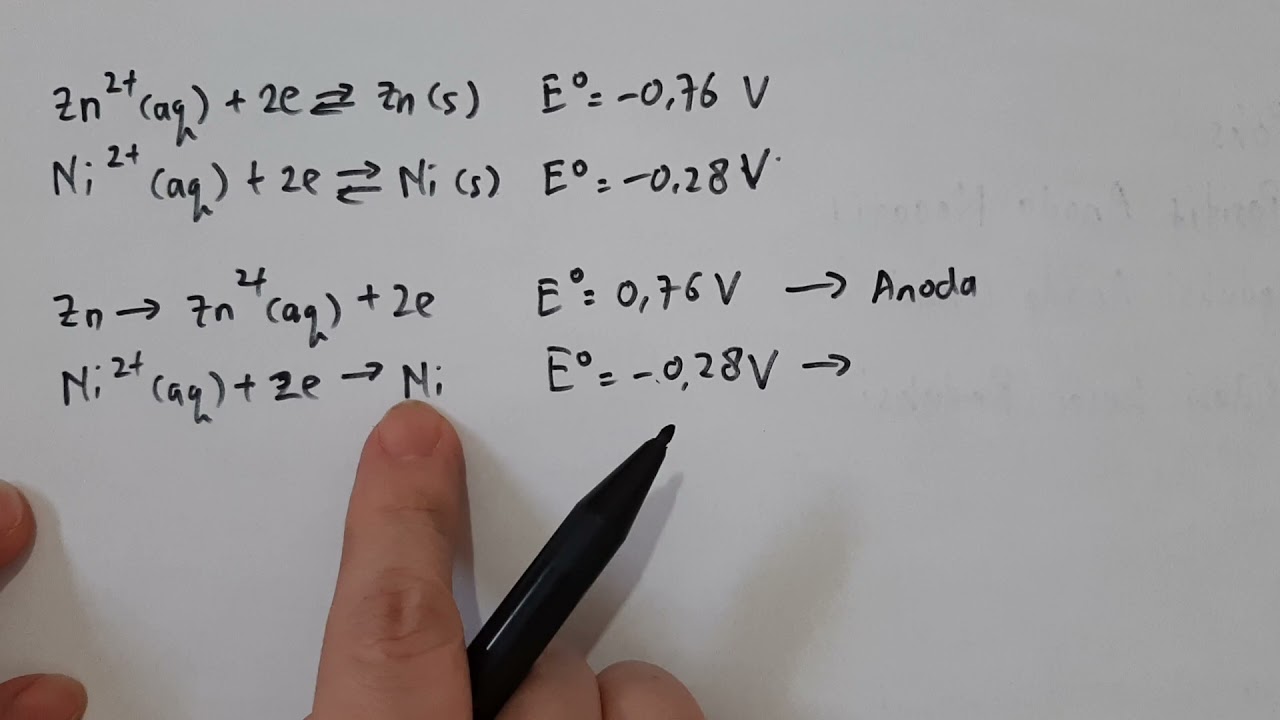 Zn²⁺(aq) + 2e ⇄ Zn(s) E° = -0,76 V
Ni²⁺(aq) + 2e ⇄ Ni(s) E° = -0.28 V
Zn → Zn²⁺(aq) + 2e E° = 0,76 V → Anoda
Ni²⁺(aq) + 2e → Ni E° = -0,28 V →